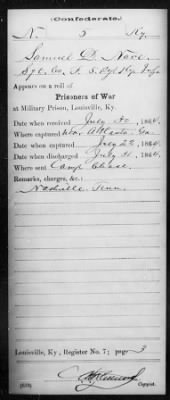 (Confederate.)
N. 5 Ky.
Samuel D. Nave
Sgt. Co. F. 5 Regt Ky. Infy
Appears on a roll of
Prisoners of War
at Military Prison, Louisville, Ky.
Date when received July 30, 1864.
Where captured Near Atlanta Ga.
Date when captured July 22, 1864.
Date when discharged July 31, 1864.
Where sent Camp Chase.
Remarks, charges, &c.:
Nashville Tenn.
Louisville, Ky., Register No. 7; page 3
Copyist.